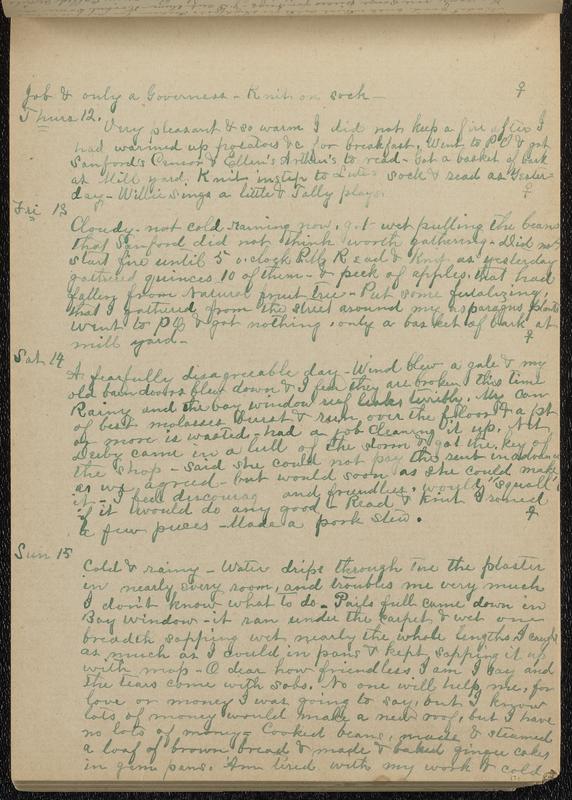 Job & only a Governess - Knit on sock - ♀
Thurs 12.
Very pleasant & so warm I did not keep a fire after I
had warmed up potatoes &c for breakfast. Went to P O & got
Sanford's Censor & Ellen's Arthur's to read - Got a basket of bark
at Mill yard. Knit instep to sock & read as yester-
day - Willie sings a little & Tally plays. ♀
Fri 13
Cloudy - not cold raining now, got wet pulling the beans
that Sanford did not think worth gathering. Did not
start fire until 5 o'clock P.M. Read & Knit as yesterday
gathered quinces 10 of them - & peck of apples that had
fallen from Natural fruit tree - Put some
that I gathered from the street around my asparagus plants
Went to PO & got nothing, only a basket of bark at
mill yard - ♀
Sat 14
A fearfully disagreeable day - Wind blew a gale & my
old barn doors blew down & I fear they are broken this time
Rainy and the bay window roof leaks terribly. My can
of best molasses burst & run over the floor & a pt
or more is wasted - had a job cleaning it up. Net
Derby came in a lull of the storm & got the key of
the shop - said she could not pay the rent in advance
as we agreed - but would soon as she could make
it - I feel discourag and friendless, would "squall"
if it would do any good - Read & knit & ironed
a few pieces - Made a pork stew. ♀
Sun 15
Cold & rainy - Water drips through the plaster
in nearly every room, and troubles me very much
I don't know what to do - Pails full came down in
Bay window - it ran under the carpet & wet one
breadth sopping wet nearly the whole length. I caught
as much as I could in pans & kept sopping it up
with mop - O dear how friendless I am I say and
the tears come with sobs. No one will help me, for
love or money I was going to say, but I know
lots of money would make a new roof, but I have
no lots of money - Cooked beans, made & steamed
a loaf of brown bread & made & baked ginger cakes
in gem pans. Am tired with my work & cold